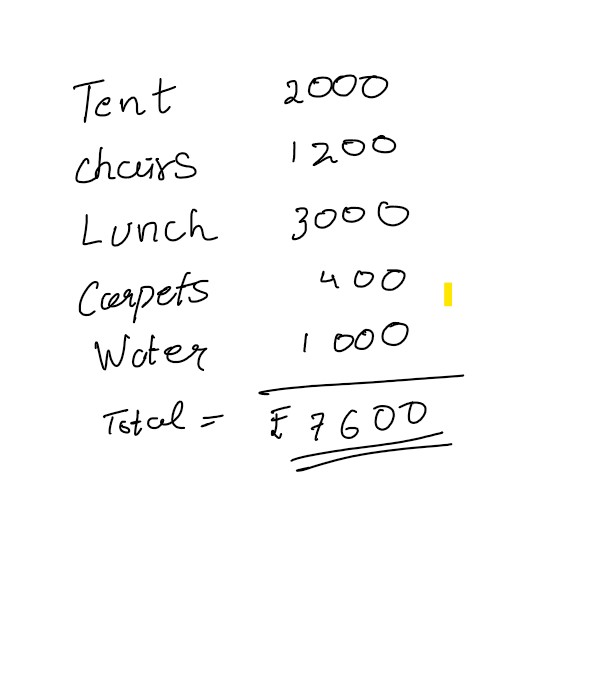 Tent 2000
chairs 1200
Lunch 3000
Carpets 400
Water 1000
Total = ₹ 7600